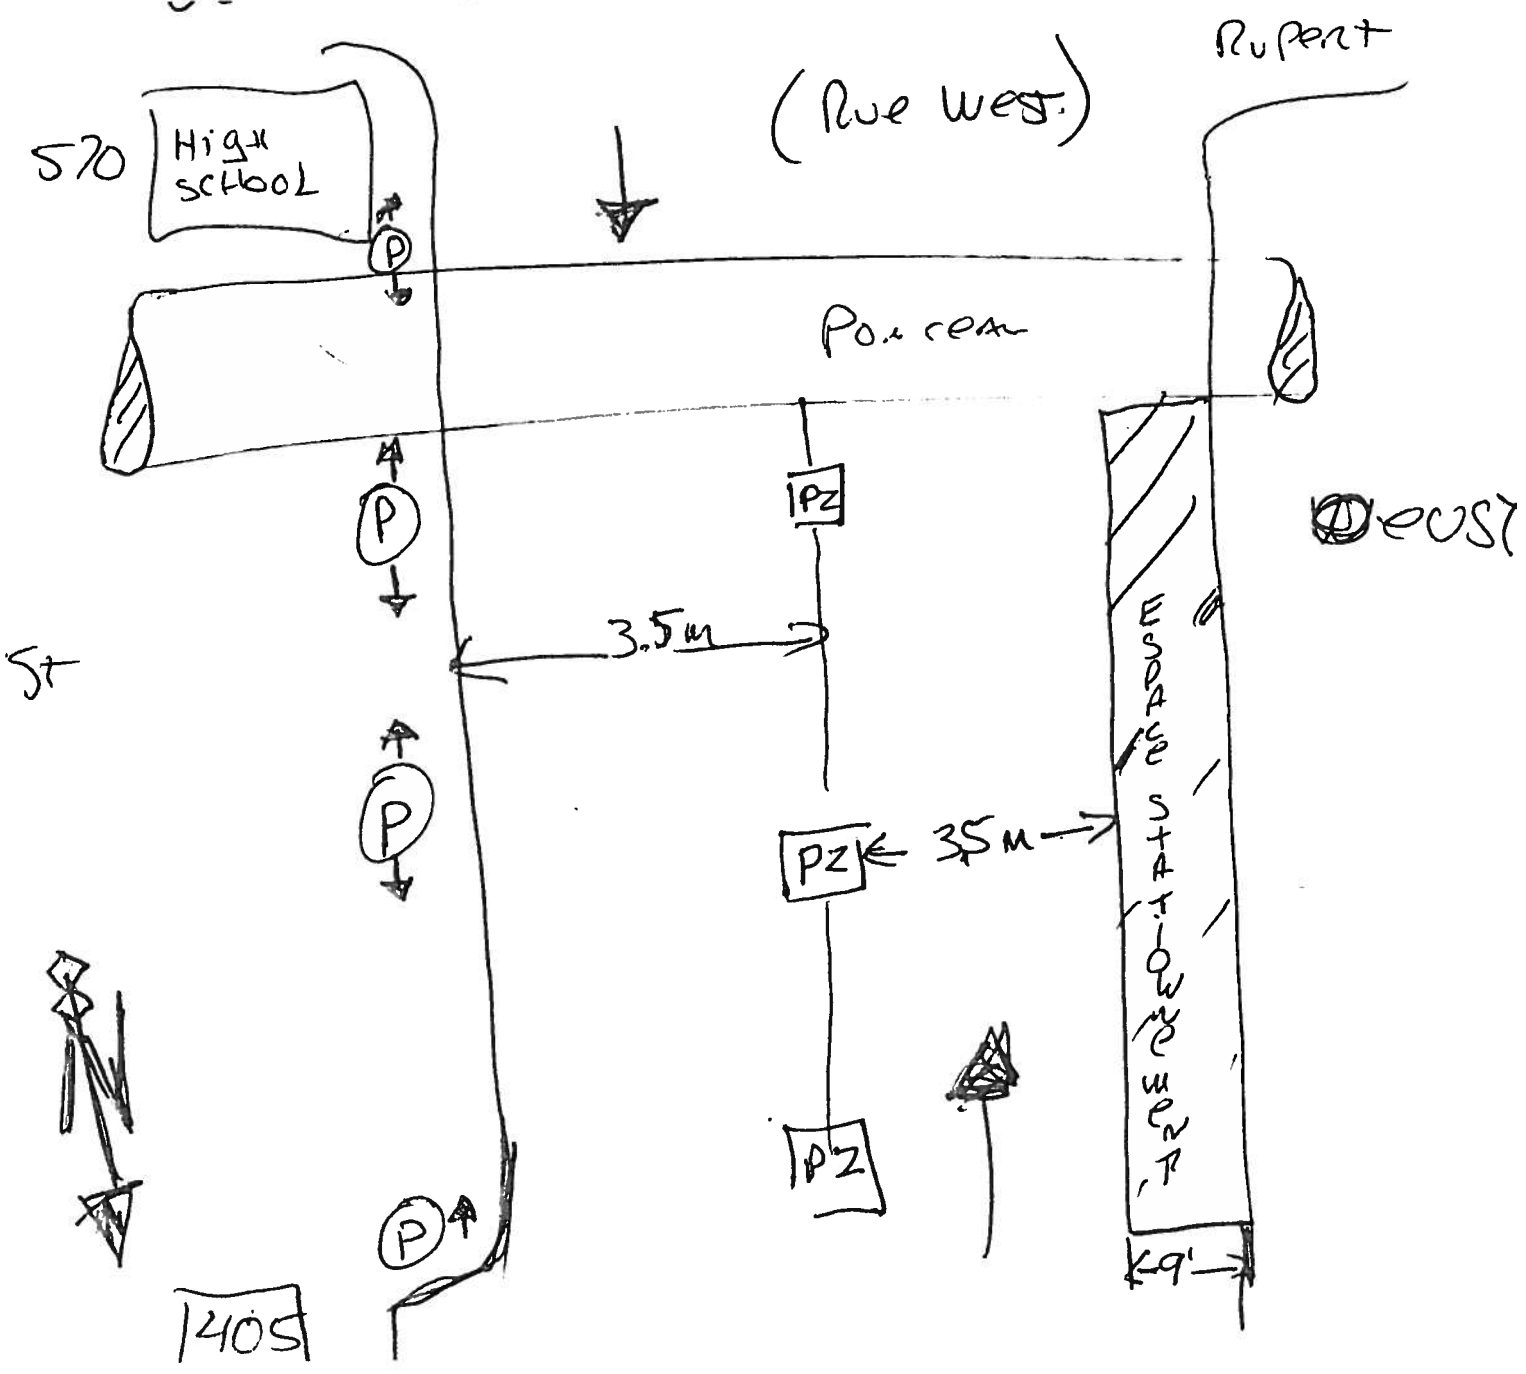 Rupert
(Rue West.)
570
High
school
P
Ponceau
P
PZ
3.5m
St
P
PZ
3.5 m
ESPACE STATIONNEMENT
P
PZ
9'
405